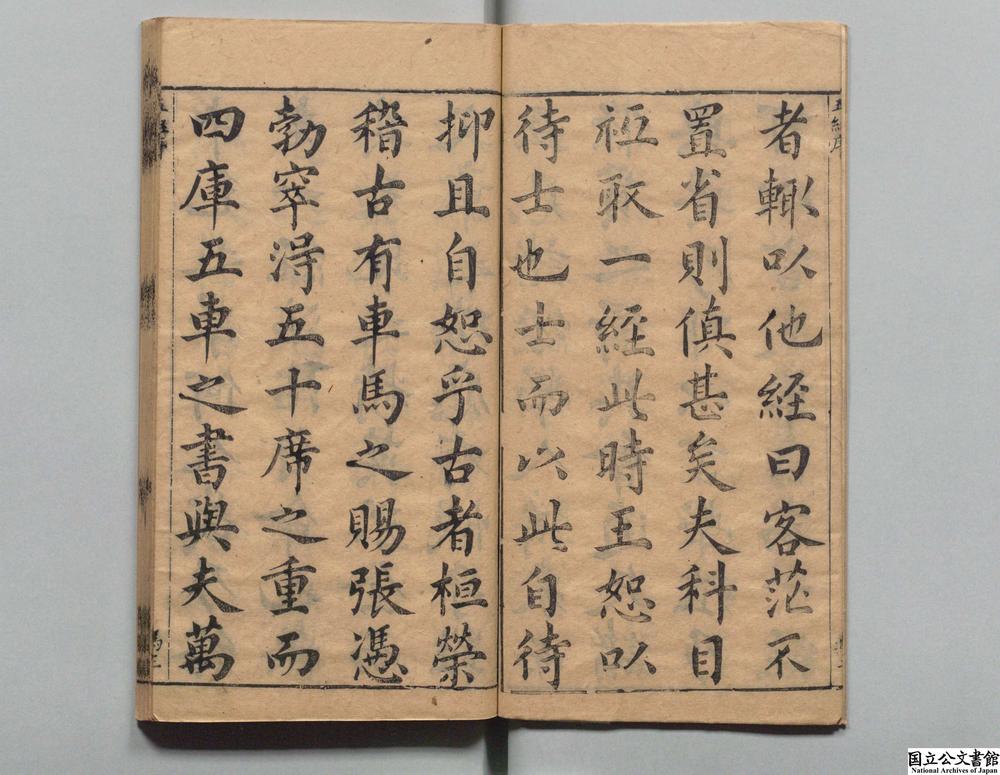 者輙以他經曰客茫不
置省則傎甚矣夫科目
祗取一經此時王恕以
待士也士而以此自待
抑且自恕乎古者桓榮
稽古有車馬之賜張憑
勃窣淂五十席之重而
四庫五車之書與夫萬
国立公文書館
National Archives of Japan